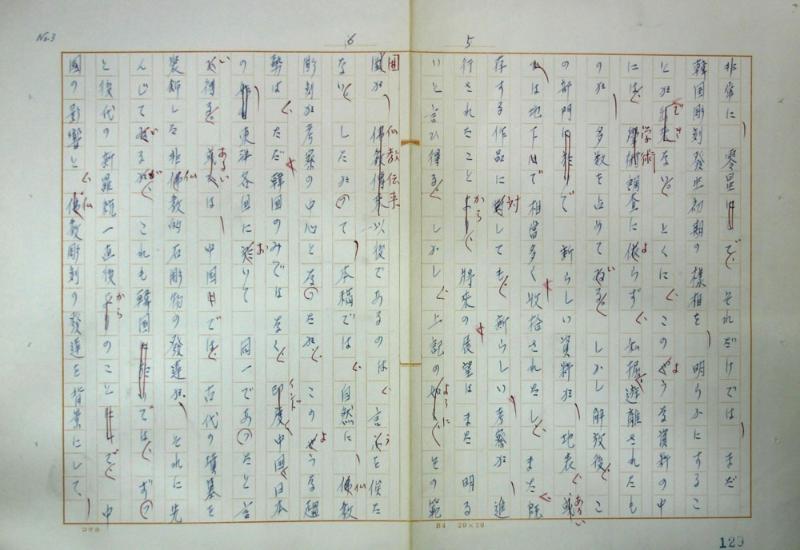 5
非常に 零星 で それだけでは まだ
韓国彫刻發生初期の様相を 明らかにするこ
とが できない とくに このような資料の中
には 学術調査に よらず 私掘遊離されたも
のが 多数を占めて いる しかし解放後 こ
の部門 で 新らしい資料が 地表 あるい
は地下 で相當多く收拾されたし また既
存する作品に対しても 新らしい考察が 進
行されたこと から 將來の展望はまた 明る
いと言い得る しかし 上記の ように その範
No.3
6
囲が 仏教伝来以後であるのは 言うを俟た
ない したがって 本稿では 自然に 仏教
彫刻が考察の中心となったが このような趨
勢は ただ韓国のみではなく インド 中国 日本
の 東洋各国に おいて 同一であったと言
い得る あるい は 中国 では 古代の墳墓を
装飾した非仏教的石彫物の發達が それに先
んじて いるが これも韓国 では ずっ
と後代の新羅統一直後 からのこと で 中
国の影響と 仏教彫刻の發達を背景にして
B4 20×20
129